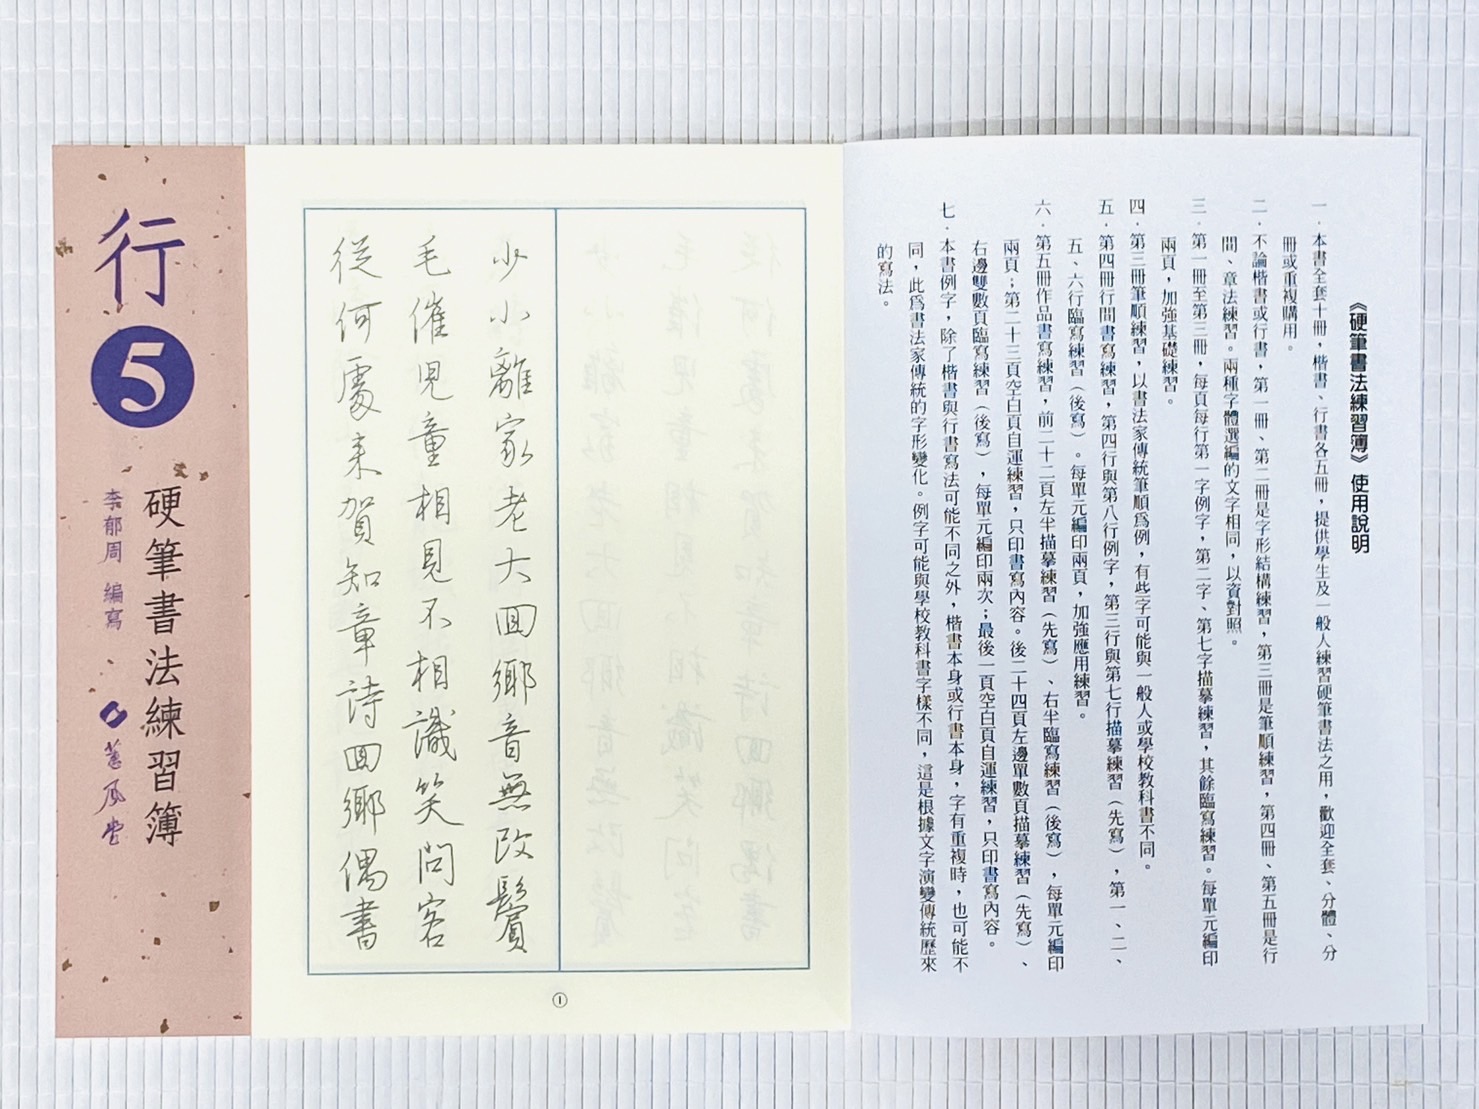 《硬筆書法練習簿》使用說明
一．本書全套十冊，楷書、行書各五冊，提供學生及一般人練習硬筆書法之用，歡迎全套、分體、分
冊或重複購用。
二．不論楷書或行書，第一冊、第二冊是字形結構練習，第三冊是筆順練習，第四冊、第五冊是行
間、章法練習。兩種字體選編的文字相同，以資對照。
三．第一冊至第三冊，每頁每行第一字例字，第二字、第七字描摹練習，其餘臨寫練習。每單元編印
兩頁，加強基礎練習。
四．第三冊筆順練習，以書法家傳統筆順爲例，有些字可能與一般人或學校教科書不同。
五．第四冊行間書寫練習，第四行與第八行例字，第三行與第七行描摹練習（先寫），第一、二、
五、六行臨寫練習（後寫）。每單元編印兩頁，加強應用練習。
六．第五冊作品書寫練習，前二十二頁左半描摹練習（先寫）、右半臨寫練習（後寫），每單元編印
兩頁；第二十三頁空白頁自運練習，只印書寫內容。後二十四頁左邊單數頁描摹練習（先寫）、
右邊雙數頁臨寫練習（後寫），每單元編印兩次；最後一頁空白頁自運練習，只印書寫內容。
七．本書例字，除了楷書與行書寫法可能不同之外，楷書本身或行書本身，字有重複時，也可能不
同，此爲書法家傳統的字形變化。例字可能與學校教科書字樣不同，這是根據文字演變傳統歷來
的寫法。
少小離家老大回鄉音無改鬢
毛催兒童相見不相識笑問客
從何處來賀知章詩回鄉偶書
①
行
5
硬筆書法練習簿
李郁周 編寫
蕙風堂